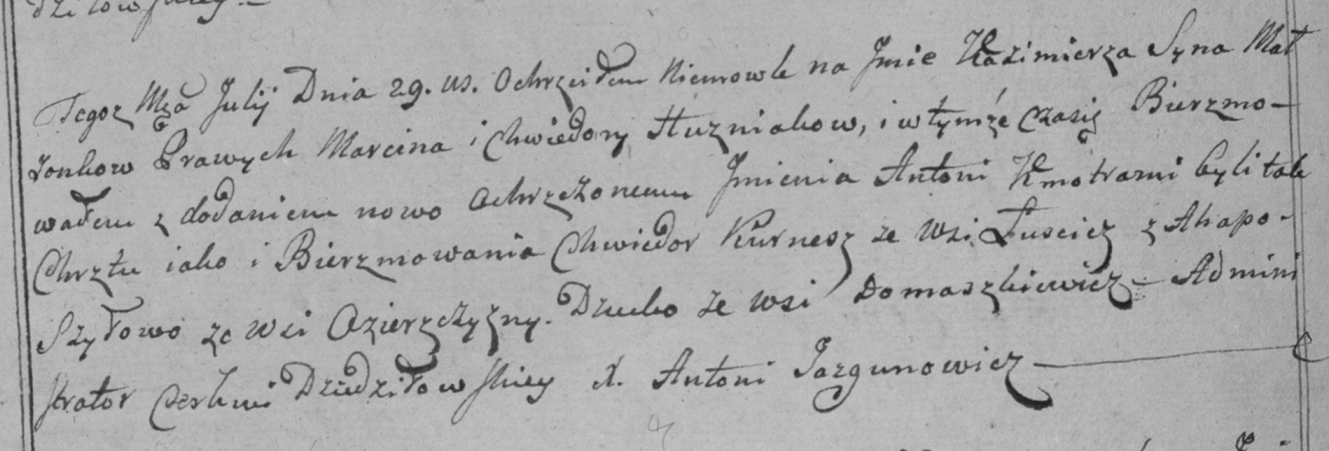 dziłowskiey.
Tegoz Mca Julij Dnia 29. us. Ochrzciłem Niemowle na Jmie Kazimierza Syna Mał
żonkow Prawych Marcina i Chwiedory Huzniakow, i w tymże czasie Bierzmo-
wałem z dodaniem nowo Ochrzczonemu Jmienia Antoni Kmotrami byli tak
Chrztu iako i Bierzmowania Chwiedor Kurnesz ze Wsi z Ahapo-
Szyłowo ze Wsi Ozierzczyzny. Dziecko ze wsi Domaszkiewicz — Admini
strator Cerkwi Dziedziłowskiey X. Antoni Jazgunowicz